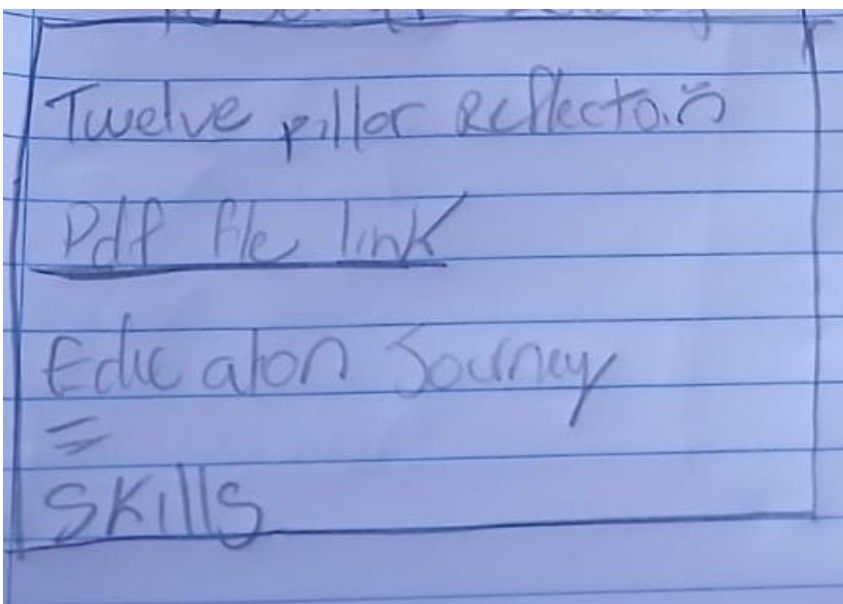 Twelve pillar Reflectoin
Pdf file link
Education Journey
=
Skills